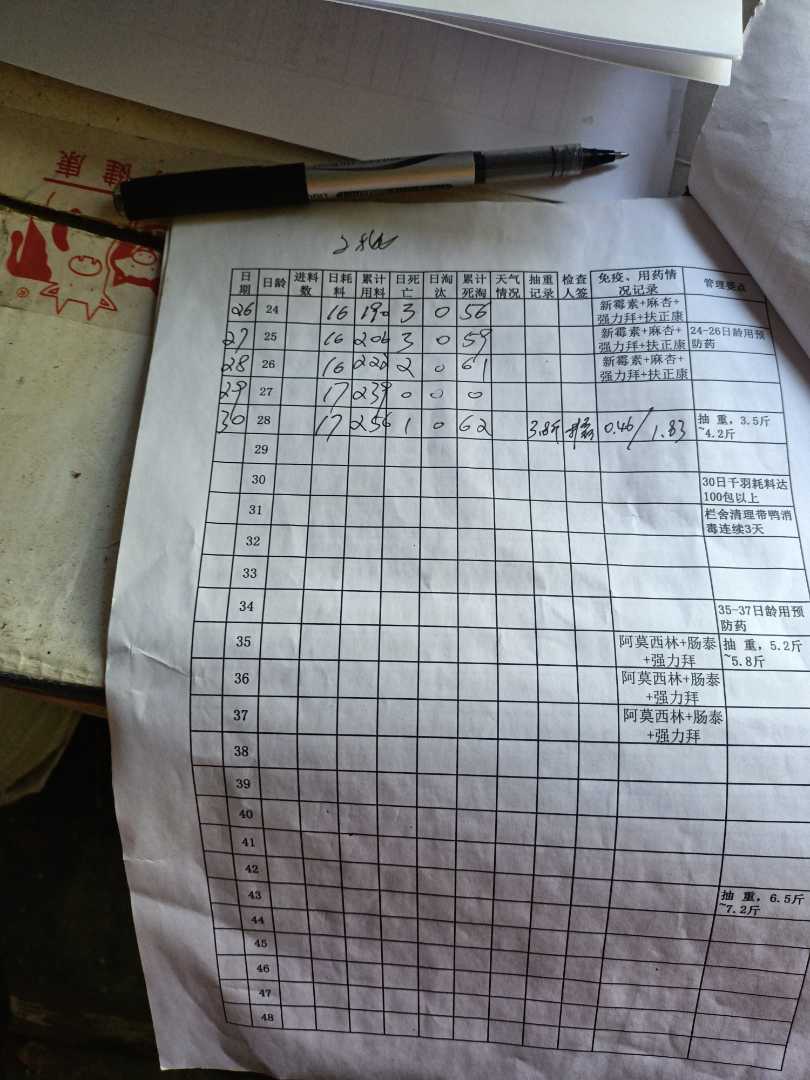 健康
日期 日龄 进料数 日耗料 累计用料 日死亡 日淘汰 累计死淘 天气情况 抽重记录 检查人签 免疫、用药情况记录 管理要点
26 24 16 190 3 0 56 新霉素+麻杏+强力拜+扶正康
27 25 16 206 3 0 59 新霉素+麻杏+强力拜+扶正康 24-26日龄用预防药
28 26 16 222 2 0 61 新霉素+麻杏+强力拜+扶正康
29 27 17 239 0 0 0
30 28 17 256 1 0 62 3.8斤 0.46/1.83 抽 重，3.5斤~4.2斤
29
30 30日千羽耗料达100包以上
31 栏舍清理带鸭消毒连续3天
32
33
34 35-37日龄用预防药
35 阿莫西林+肠泰+强力拜 抽 重，5.2斤~5.8斤
36 阿莫西林+肠泰+强力拜
37 阿莫西林+肠泰+强力拜
38
39
40
41
42
43 抽 重，6.5斤~7.2斤
44
45
46
47
48